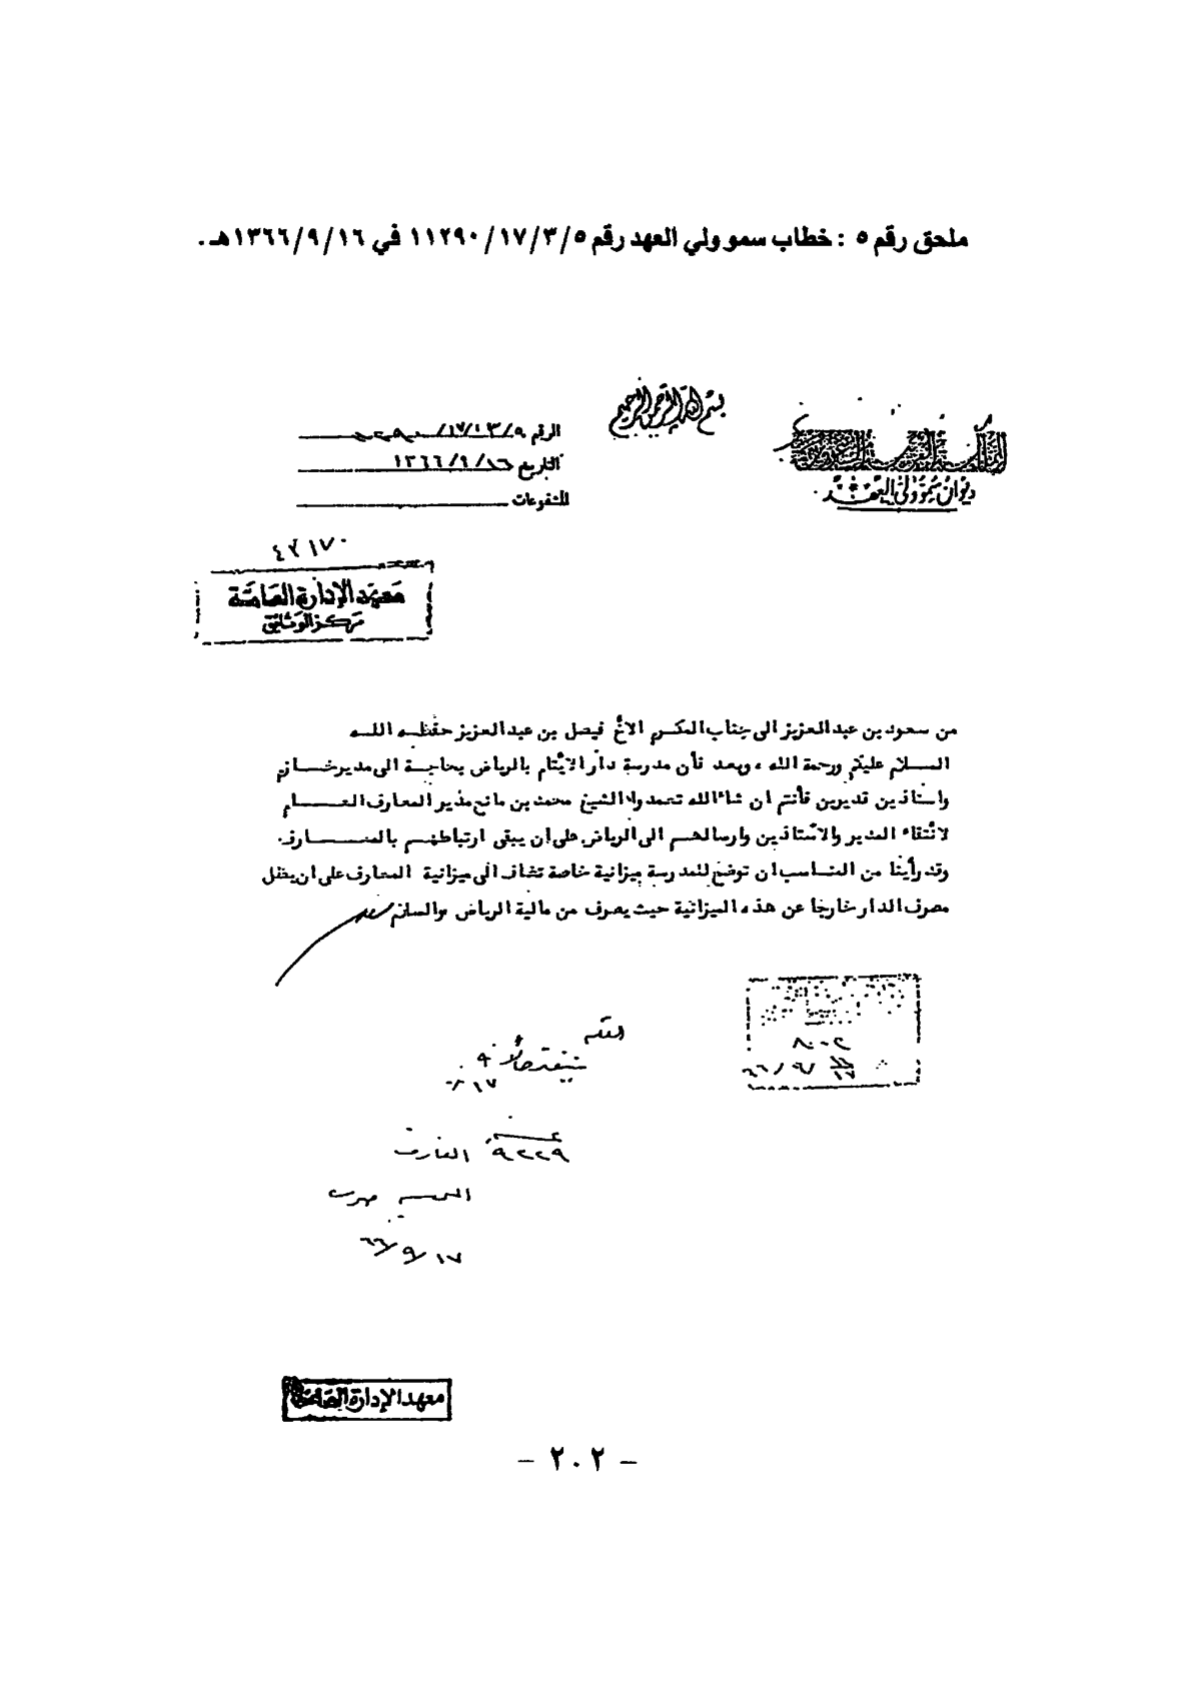 ملحق رقم ٥ : خطاب سمو ولي العهد رقم ١١٢٩٠/١٧/٣/٥ في ١٣٦٦/٩/١٦هـ .
بسم الله الرحمن الرحيم
المملكة العربية السعودية
ديوان سمو ولي العهد
الرقم
التاريخ ١٣٦٦/٩/١٦
المشفوعات
٤٣١٧٠
معهد الإدارة العامة
مركز الوثائق
من سعود بن عبدالعزيز الى جناب المكرم الاخ فيصل بن عبدالعزيز حفظه الله
السلام عليكم ورحمة الله ، وبعد فأن مدرسة دار الايتام بالرياض بحاجة الى مدير حازم
واستاذين قديرين فأنتم ان شاءالله تعمدوا الشيخ محمد بن مانع مدير المعارف العام
لانتقاء المدير والاستاذين وارسالهم الى الرياض على ان يبقى ارتباطهم بالمعارف.
وقد رأينا من المناسب ان توضع للمدرسة ميزانية خاصة تضاف الى ميزانية المعارف على ان يظل
مصرف الدار خارجا عن هذه الميزانية حيث يصرف من مالية الرياض والسلام
٨٠٠٢
٦٦/٩/١٧
٩٢٢٩ المعارف
٦٦/٩/١٧
معهد الإدارة العامة
- ٢٠٢ -